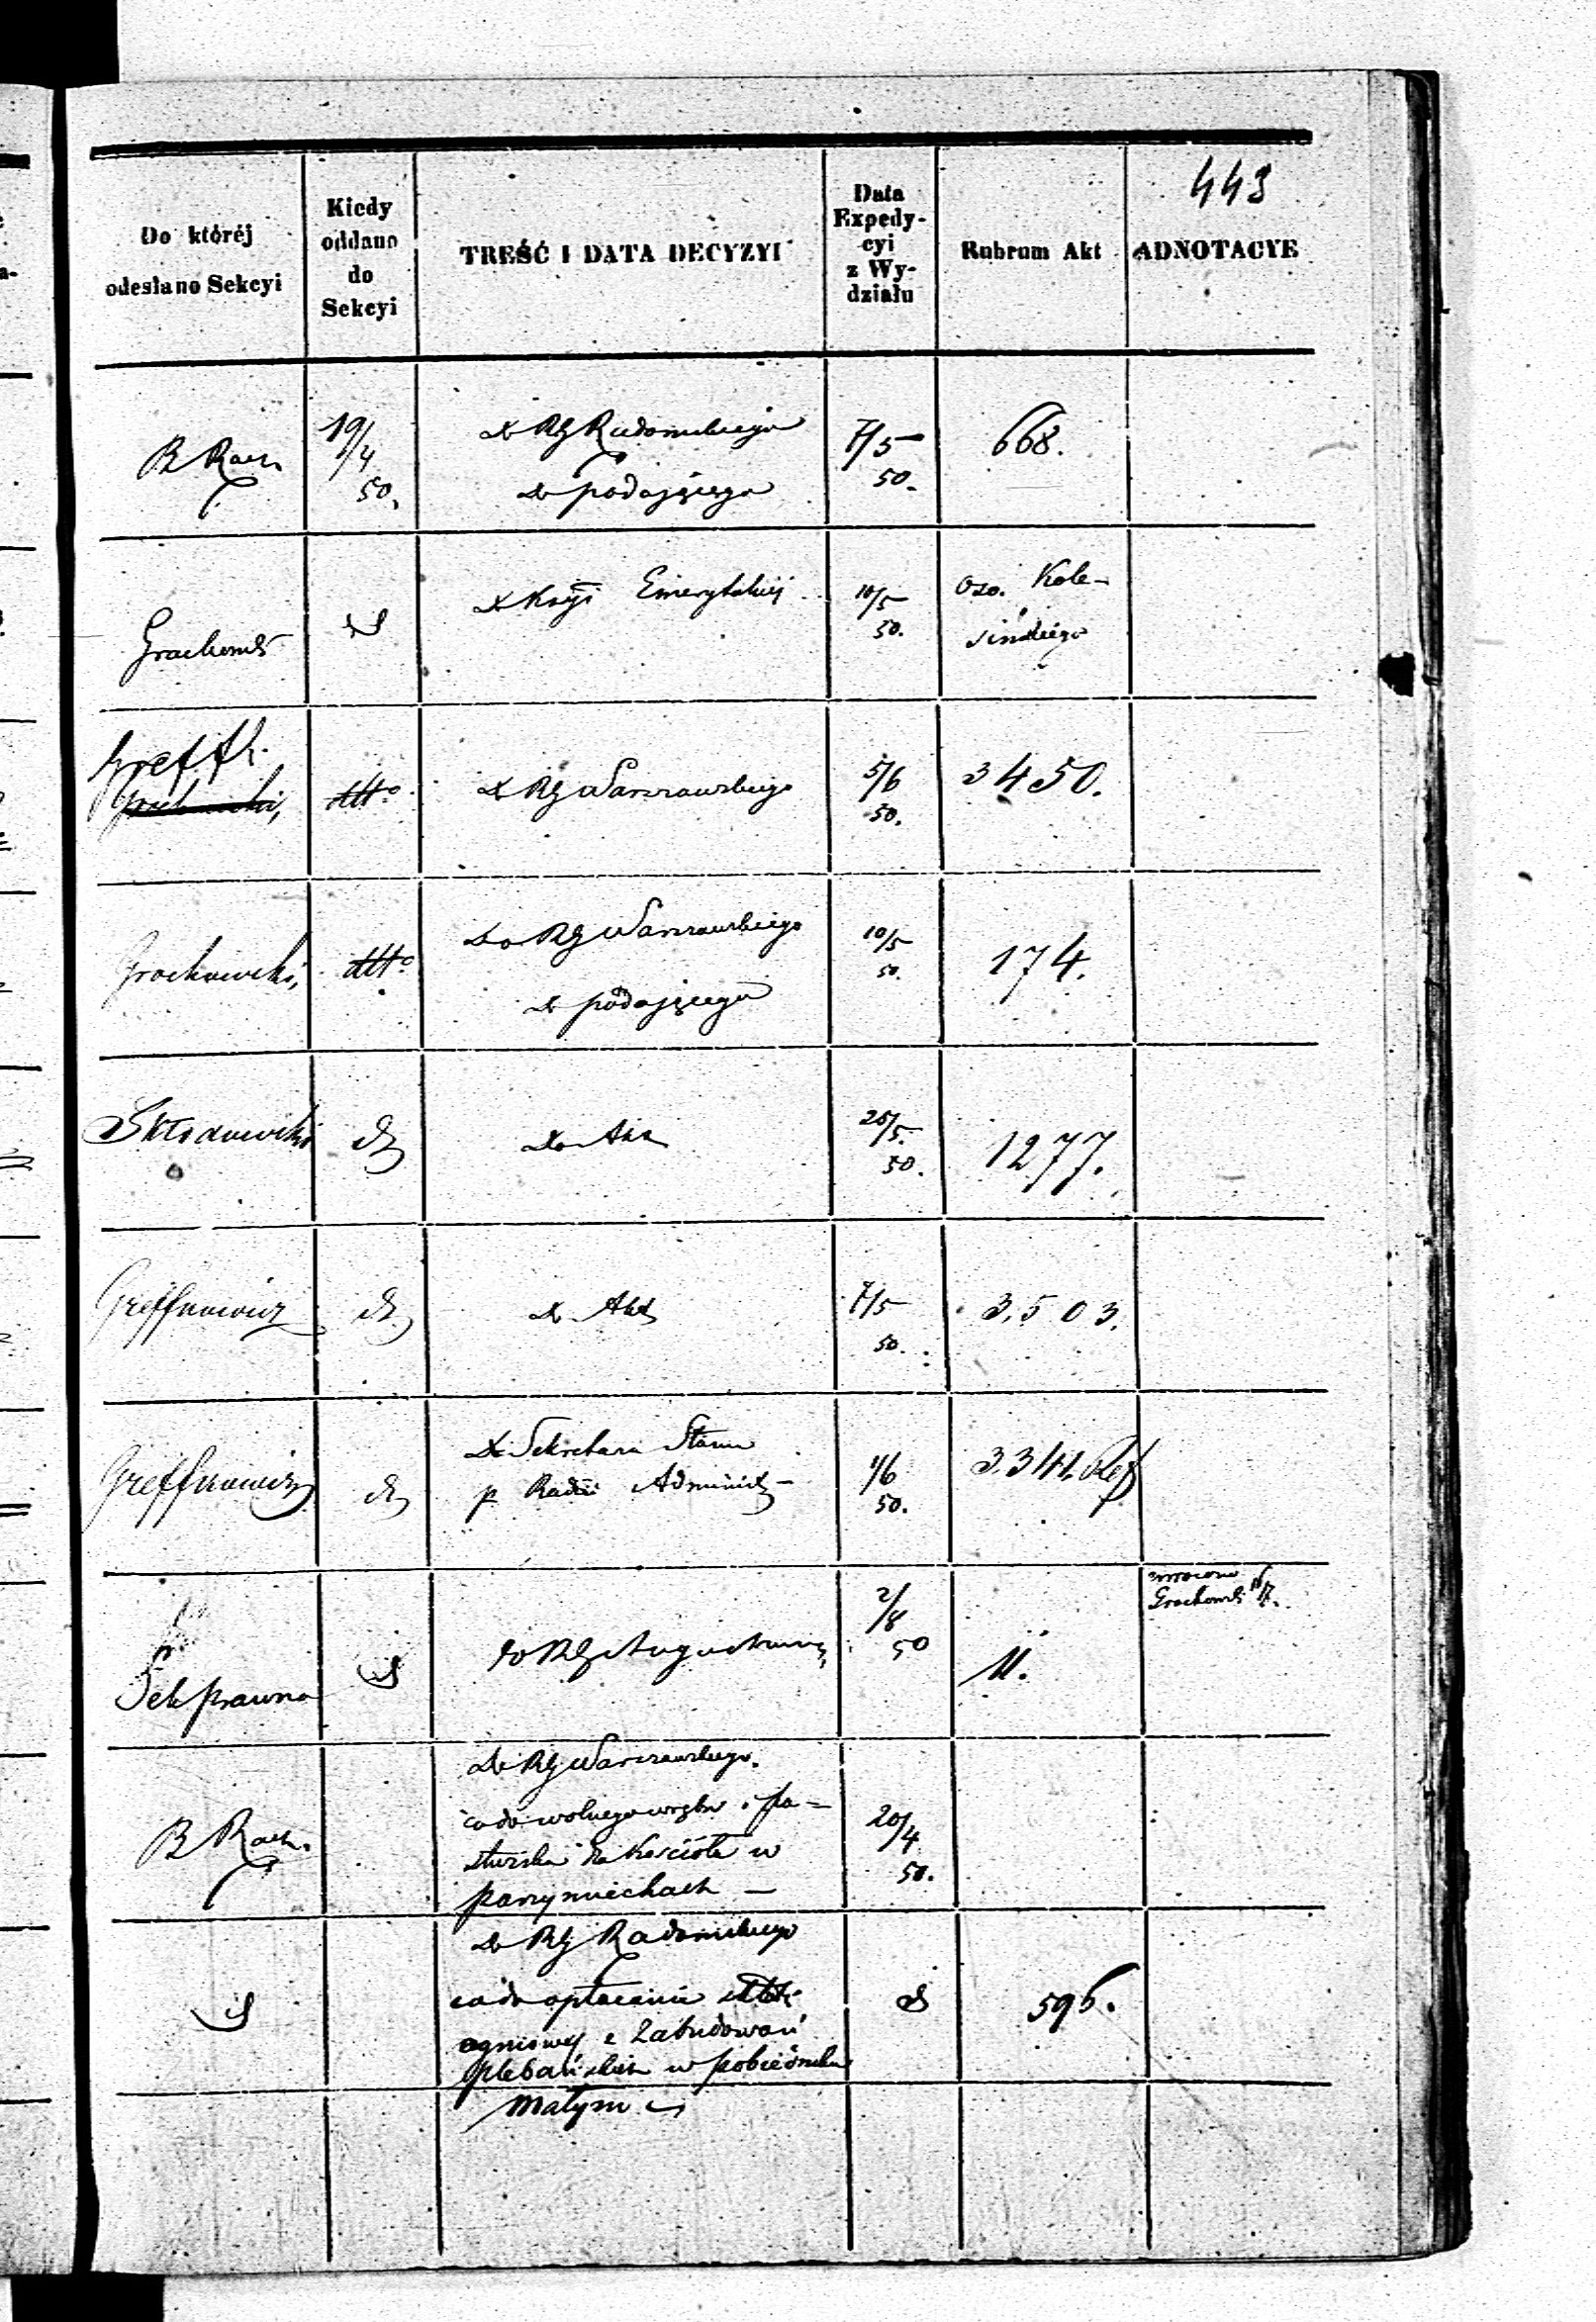 443
Do któréj
odesłano Sekcyi
Kiedy
oddano
do
Sekcyi
TREŚĆ I DATA DECYZYI
Data
Expedy-
cyi
z Wy-
działu
Rubrum Akt
ADNOTACYE
B Rach
19/4
50.
Do RG Radomskiego
Do podającego
7/5
50.
668.
Grochowski
Do Emerytalnej
10/5
50.
Oso. Kole-
sińskiego
Greffk.
dtto
Do RG Warszawskiego
5/6
50.
3450.
Grochowski,
dtto
Do RG Warszawskiego
Do podającego
10/5
50.
174.
Skłodowski
Do Akt
25/5.
50.
1277.
Greffkowicz
Do Akt
7/5
50.
3.503.
Greffkowicz
Do Sekretarza Stanu
p Radzie Administr-
1/6
50.
3.341.
Sek prawna
do RG Augustow
2/8
50
11.
zwrócono
Grochowsk
B Rach.
Do RG Warszawskiego.
co do wolnego wrębu i pa-
stwiska dla Kościoła w
Parzymiechach —
20/4
50.
Do RG Radomskiego
co do opłacania
ogniowej z Zabudowań
plebańskich w pobiednku
Małym
596.